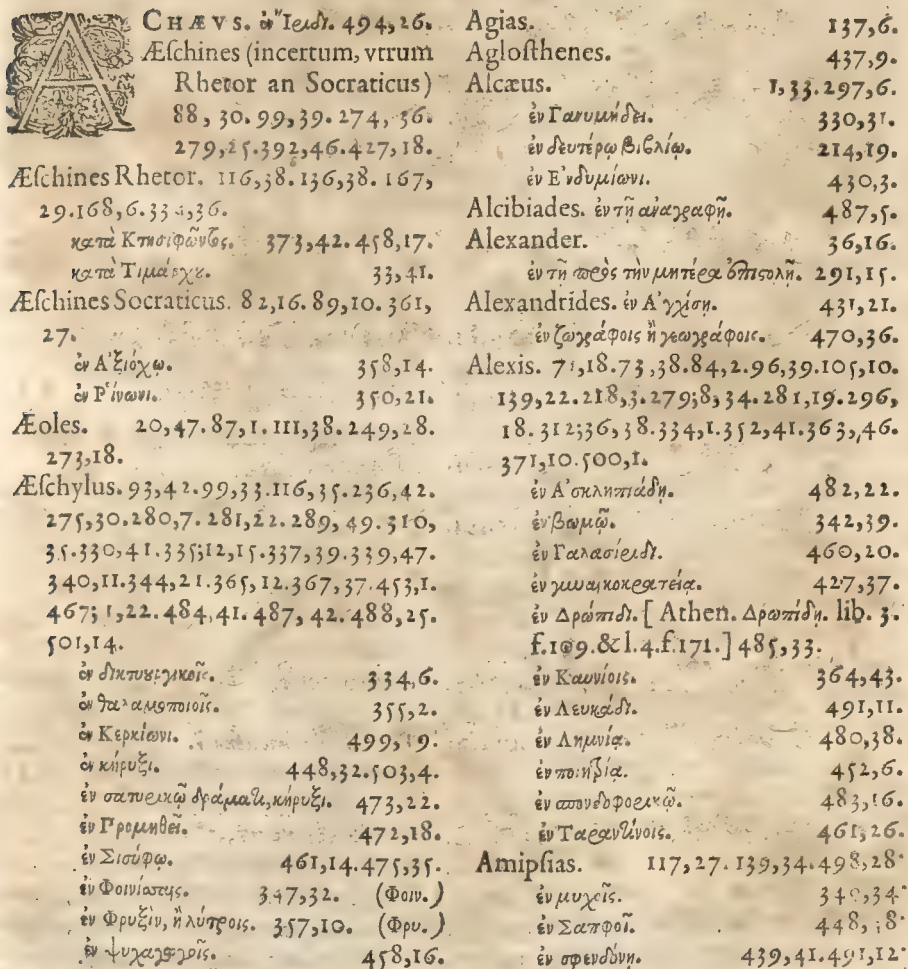 ACHÆVS. ἐν Ἴριδι. 494,26.
Æſchines (incertum, vtrum
Rhetor an Socraticus)
88, 30. 99,39. 274, 36.
279,25. 392,46. 427,18.
Æſchines Rhetor. 116,38. 136,38. 167,
29. 168,6. 36.
κατὰ Κτησιφῶντος. 373,42. 458,17.
κατὰ Τιμάρχου. 33,41.
Æſchines Socraticus. 82,16. 89,10. 361,
27.
ἐν Ἀξιόχῳ. 358,14.
ἐν Ῥίνωνι. 350,21.
Æoles. 20,47. 87,1. 111,38. 249,28.
273,18.
Æſchylus. 93,42. 99,33. 116,35. 236,42.
275,30. 280,7. 281,22. 289,49. 310,
35. 330,41. 335;12,15. 337,39. 339,47.
340,11. 344,21. 365,12. 367,37. 453,1.
467; 1,22. 484,41. 487,42. 488,25.
501,14.
ἐν δικτυουργικοῖς. 334,6.
ἐν θαλαμοποιοῖς. 355,2.
ἐν Κερκίωνι. 499,19.
ἐν κήρυξι. 448,32. 503,4.
ἐν σατυρικῷ δράματι, κήρυξι. 473,22.
ἐν Προμηθεῖ. 472,18.
ἐν Σισύφῳ. 461,14. 475,35.
ἐν Φοινίσσαις. 347,32. (Φοιν.)
ἐν Φρυξὶν, ἢ λύτροις. 357,10. (Φρυ.)
ἐν ψυχαγωγοῖς. 458,16.
Agias. 137,6.
Agloſthenes. 437,9.
Alcæus. 1,33. 297,6.
ἐν Γανυμήδει. 330,31.
ἐν δευτέρῳ βιβλίῳ. 214,19.
ἐν Ἐνδυμίωνι. 430,3.
Alcibiades. ἐν τῇ ἀναγραφῇ. 487,5.
Alexander. 36,16.
ἐν τῇ πρὸς τὴν μητέρα ἐπιστολῇ. 291,15.
Alexandrides. ἐν Ἀγχίσῃ. 431,21.
ἐν ζωγράφοις ἢ γεωγράφοις. 470,36.
Alexis. 73,38. 84,2. 96,39. 105,10.
139,22. 218,3. 279;8,34. 281,19. 296,
18. 312;36,38. 334,1. 352,41. 363,46.
371,10. 500,1.
ἐν Ἀσκληπιάδῃ. 482,22.
ἐν βωμῷ. 342,39.
ἐν Γαλασίριδι. 460,20.
ἐν γυναικοκρατείᾳ. 427,37.
ἐν Δρώπιδι. [Athen. Δρωπίδῃ. lib. 3.
f.109. & l.4. f.171.] 485,33.
ἐν Καυνίοις. 364,43.
ἐν Λευκάδι. 491,11.
ἐν Λημνίᾳ. 480,38.
ἐν 452,6.
ἐν σπονδοφορικῷ. 483,16.
ἐν Ταραντίνοις. 461,26.
Amipſias. 117,27. 139,34. 498,28.
ἐν μυχοῖς. 34
ἐν Σαπφοῖ. 448,
ἐν σφενδόνῃ. 439,41. 491,12.